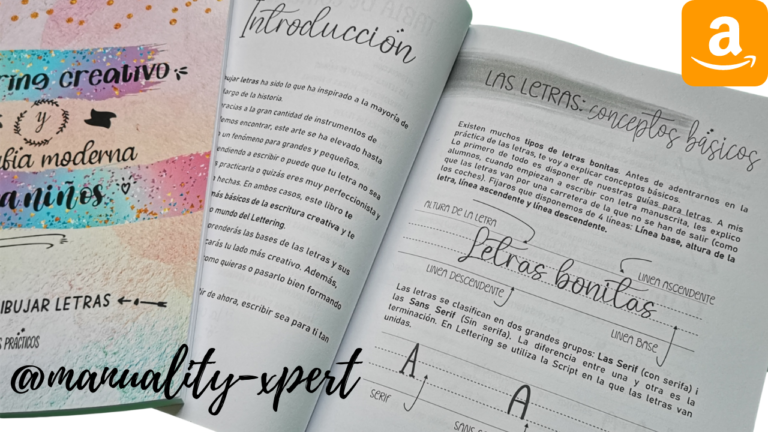 ring creativo
y
afía moderna
a niños
DIBUJAR LETRAS
S PRÁCTICOS
Introducción
bujar letras ha sido lo que ha inspirado a la mayoría de
largo de la historia.
racias a la gran cantidad de instrumentos de
emos encontrar, este arte se ha elevado hasta
un fenómeno para grandes y pequeños.
ndiendo a escribir o puede que tu letra no sea
practicarla o quizás eres muy perfeccionista y
hechas. En ambos casos, este libro te
más básicos de la escritura creativa y te
mundo del Lettering.
prenderás las bases de las letras y sus
carás tu lado más creativo. Además,
como quieras o pasarlo bien formando
tir de ahora, escribir sea para ti tan
LAS LETRAS: conceptos básicos
Existen muchos tipos de letras bonitas. Antes de adentrarnos en la
práctica de las letras, te voy a explicar conceptos básicos.
Lo primero de todo es disponer de nuestras guías para letras. A mis
alumnos, cuando empiezan a escribir con letra manuscrita, les explico
que las letras van por una carretera de la que no se han de salir (como
los coches). Fijaros que disponemos de 4 líneas: Línea base, altura de la
letra, línea ascendente y línea descendente.
ALTURA DE LA LETRA
LINEA ASCENDENTE
Letras bonitas
LINEA DESCENDENTE
LINEA BASE
Las letras se clasifican en dos grandes grupos: Las Serif (con serifa) i
las Sans Serif (Sin serifa). La diferencia entre una y otra es la
terminación. En Lettering se utiliza la Script en la que las letras van
unidas.
A
A
SERIF
SANS
@manuality-xpert
a